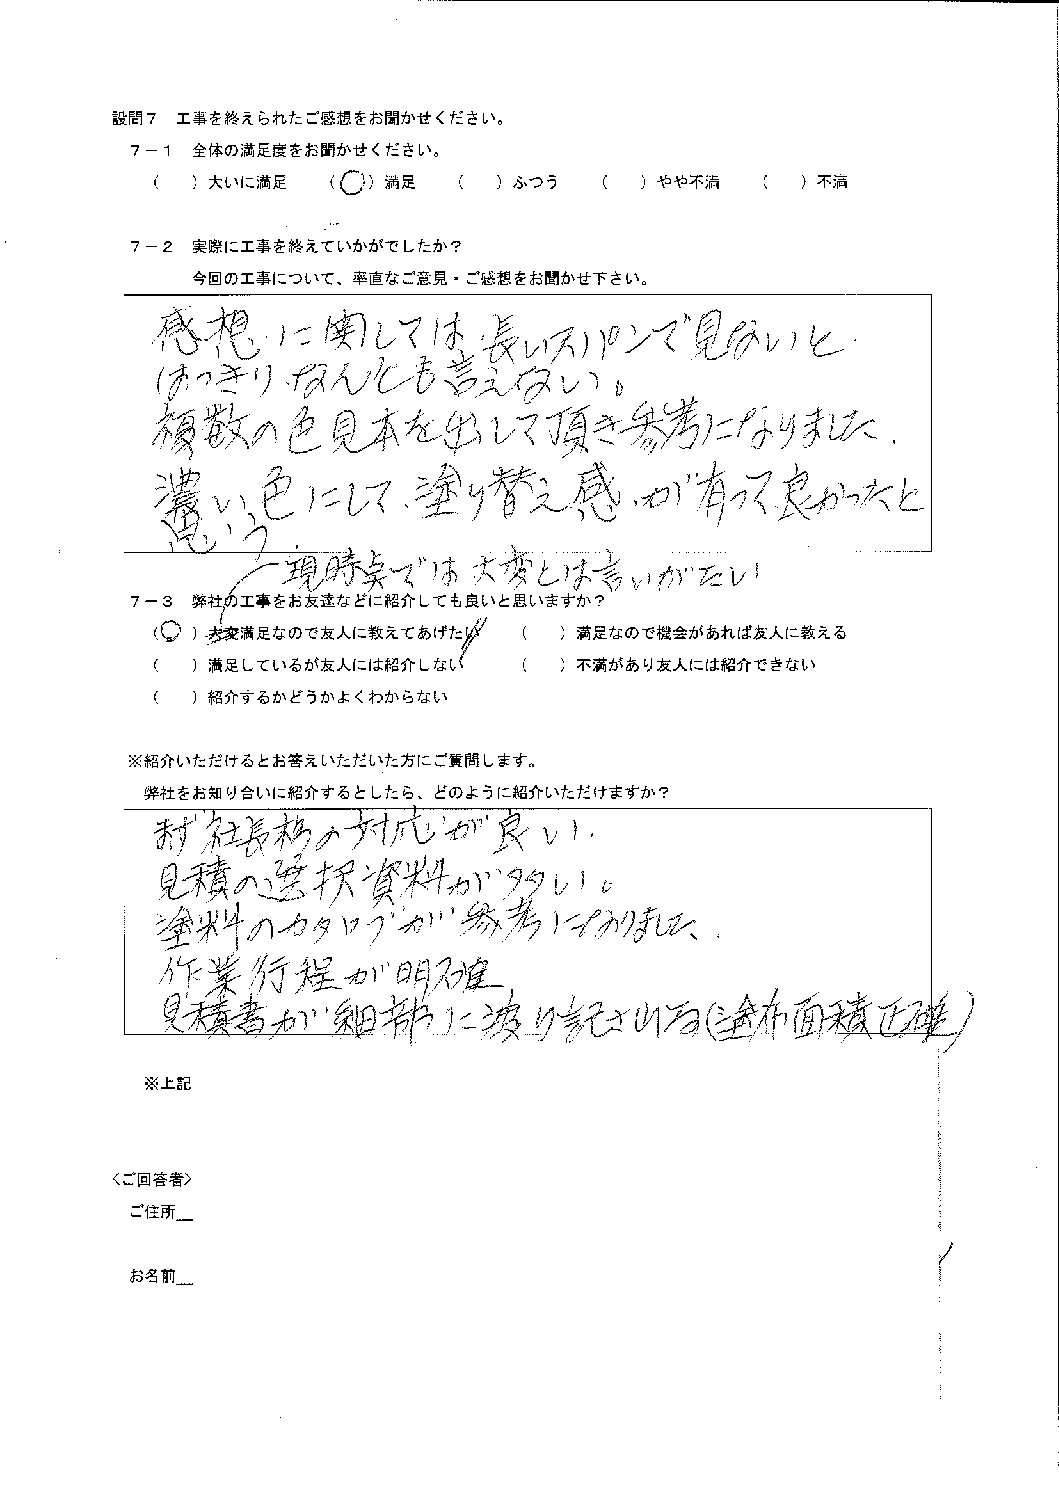 設問７　工事を終えられたご感想をお聞かせください。
７－１　全体の満足度をお聞かせください。
（　）大いに満足　（○）満足　（　）ふつう　（　）やや不満　（　）不満
７－２　実際に工事を終えていかがでしたか？
今回の工事について、率直なご意見・ご感想をお聞かせ下さい。
感想に関しては長いスパンで見ないと
はっきりなんとも言えない。
複数の色見本を出して頂き参考になりました。
濃い色にして、塗り替え感が有って良かったと
思う
現時点では大変とは言いがたい
７－３　弊社の工事をお友達などに紹介しても良いと思いますか？
（○）大変満足なので友人に教えてあげたい　（　）満足なので機会があれば友人に教える
（　）満足しているが友人には紹介しない　（　）不満があり友人には紹介できない
（　）紹介するかどうかよくわからない
※紹介いただけるとお答えいただいた方にご質問します。
弊社をお知り合いに紹介するとしたら、どのように紹介いただけますか？
まず社長様の対応が良い。
見積の選択資料が多い。
塗料のカタログが参考になりました。
作業行程が明確
見積書が細部に渡り記されてる（塗布面積正確）
※上記
＜ご回答者＞
ご住所
お名前